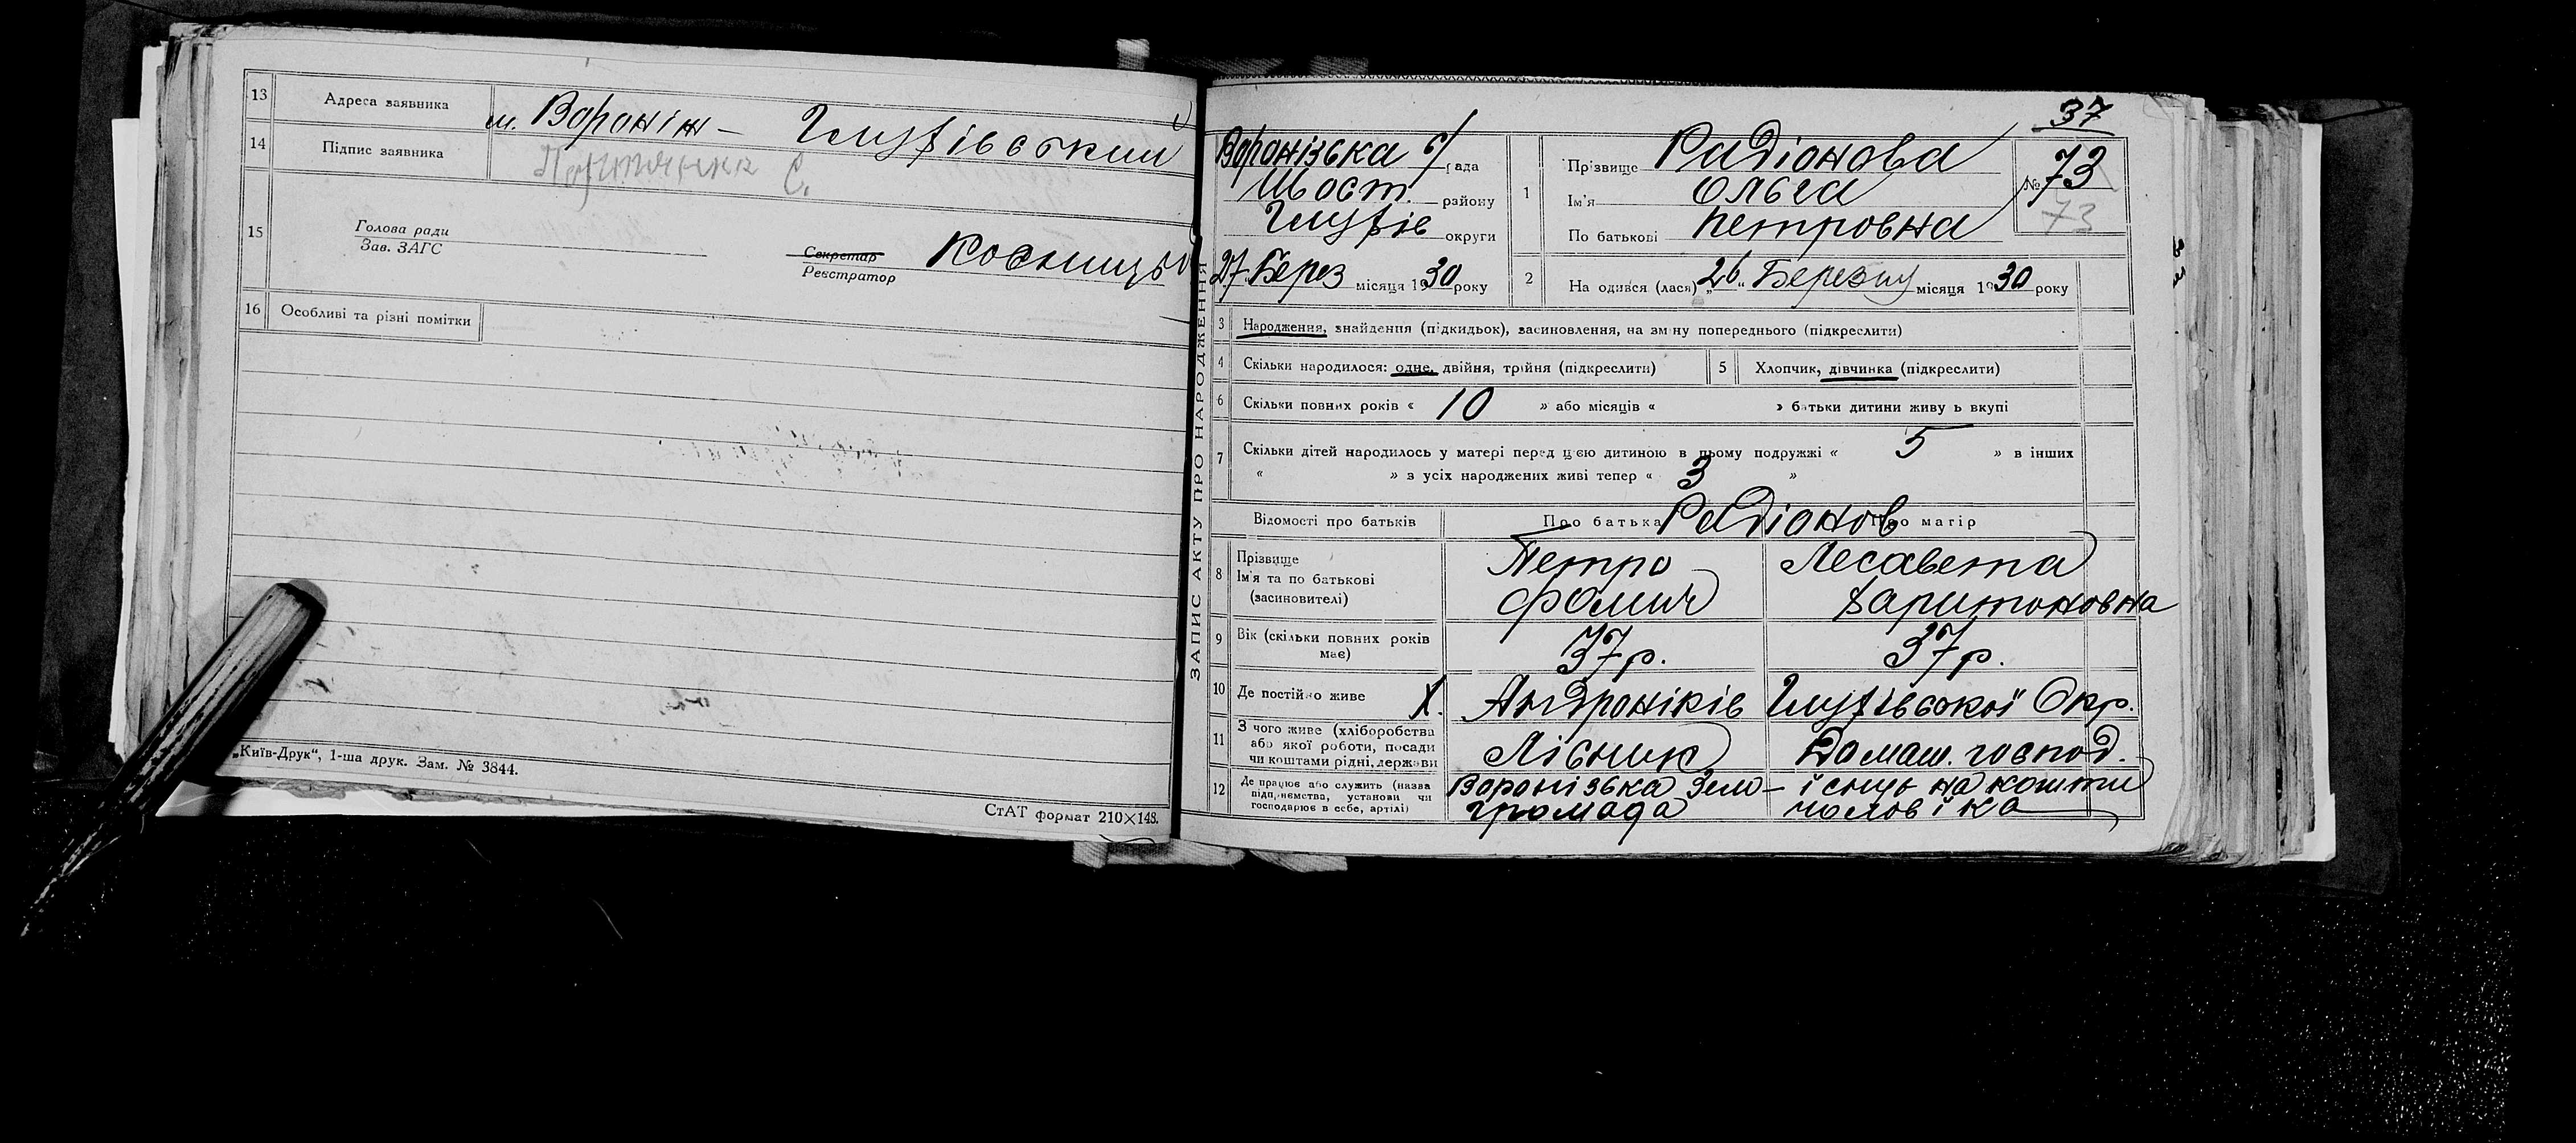 13 Адреса заявника м. Вороніж – Глухівський
14 Підпис заявника С.
15 Голова ради
Зав. ЗАГС
Секретар
Реєстратор
16 Особливі та різні помітки
„Київ-Друк“, 1-ша друк. Зам. № 3844.
СтАТ формат 210×148.
ЗАПИС АКТУ ПРО НАРОДЖЕННЯ
37
Воронізька с/рада
Шост. району
Глухів округи
27 Берез місяця 1930 року
1 Прізвище Радіонова
Ім'я Ольга
По батькові Петровна
№ 73
73
2 На одився (лася) „26“ Березня місяця 1930 року
3 Народження, знайдення (підкидьок), засиновлення, на зміну попереднього (підкреслити)
4 Скільки народилося: одне, двійня, трійня (підкреслити) 5 Хлопчик, дівчинка (підкреслити)
6 Скільки повних років « 10 » або місяців « » батьки дитини живу ь вкупі
7 Скільки дітей народилось у матері перед цією дитиною в цьому подружжі « 5 » в інших
« » з усіх народжених живі тепер « 3 »
Відомості про батьків Про батька Радіонов Про матір
8 Прізвище
Ім'я та по батькові
(засиновителі)
Петро Лесавета
Фомич Харитоновна
9 Вік (скільки повних років має) 37 р. 37 р.
10 Де постійно живе х. Андроніків Глухівської Окр.
11 З чого живе (хліборобства
або якої роботи, посади
чи коштами рідні, держави
Лісник Домаш. господ.
12 Де працює або служить (назва
підприємства, установи чи
господарює в себе, артілі)
Воронізька Зем– існує на кошти
громада чоловіка